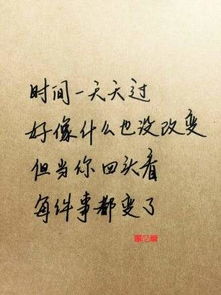 时间一天天过
好像什么也没改变
但当你回头看
每件事都变了